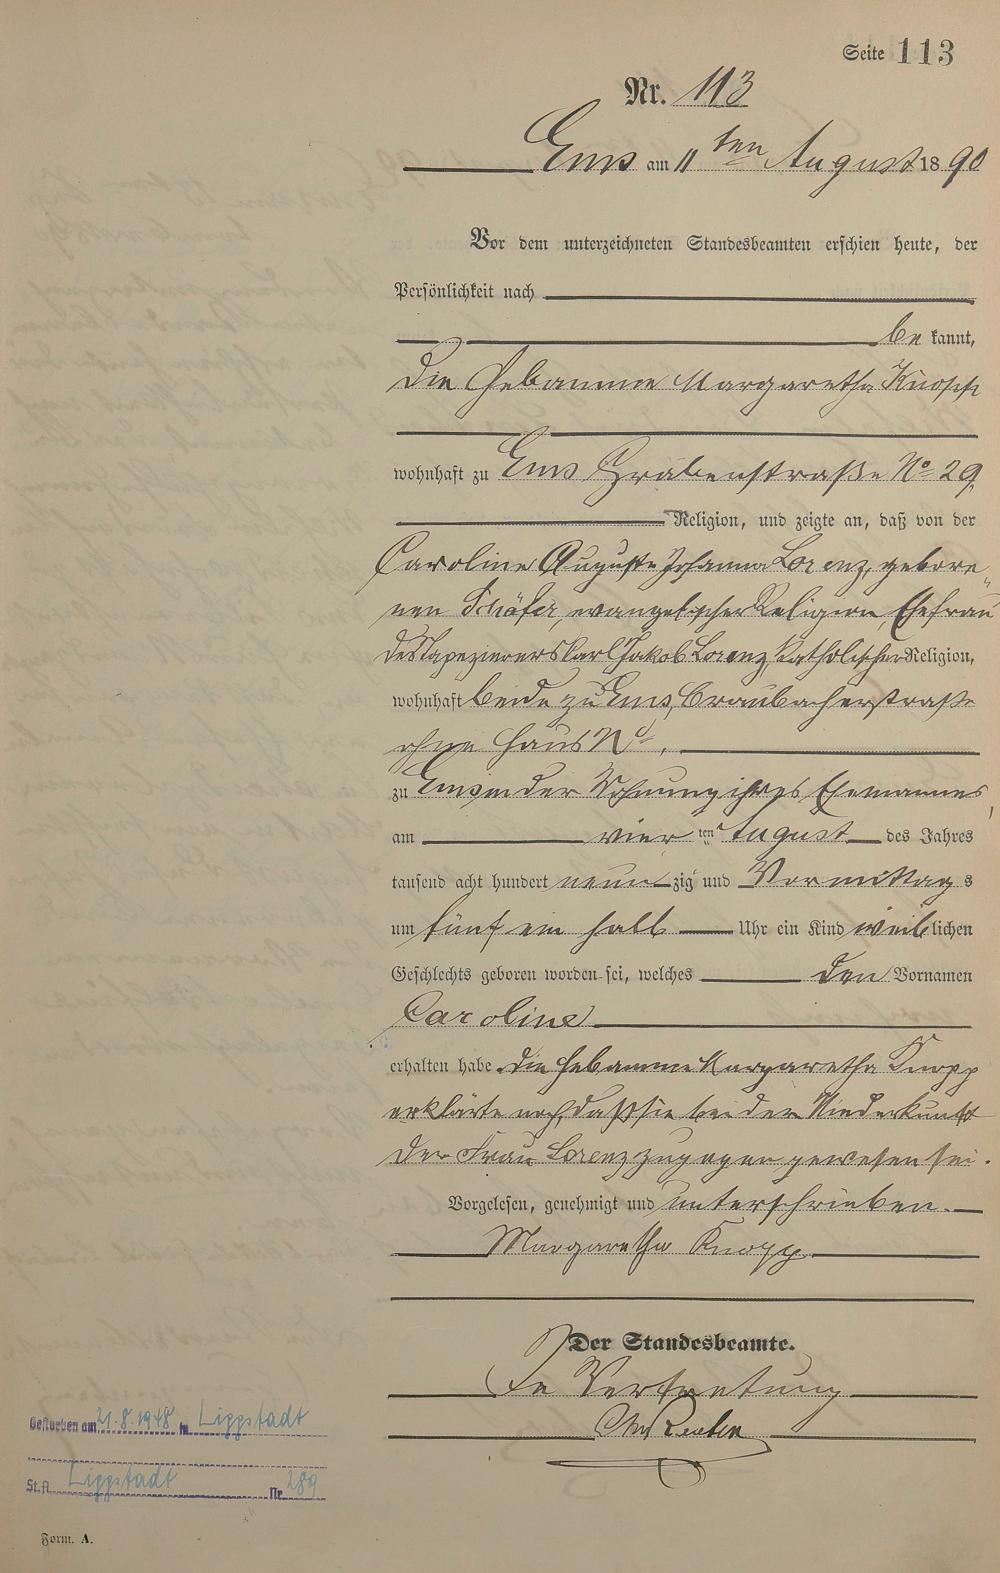 Seite 113
Nr. 113
Ems am 11ten August 1890
Vor dem unterzeichneten Standesbeamten erschien heute, der
Persönlichkeit nach
bekannt,
die Hebamme Margaretha Knopp
wohnhaft zu Ems Grabenstraße No 29
Religion, und zeigte an, daß von der
Caroline Auguste Johanna Lorenz, gebore„
nen Schäfer, evangelischer Religion, Ehefrau
des Tapezierers Karl Jakob Lorenz, katholischer Religion,
wohnhaft beide zu Ems, Braubacherstraße
ohne Haus No,
zu Ems in der Wohnung ihres Ehemannes,
am vierten August des Jahres
tausend acht hundert neunzig und Vormittags
um fünf ein halb Uhr ein Kind weiblichen
Geschlechts geboren worden sei, welches den Vornamen
Caroline
erhalten habe. Die Hebamme Margaretha Knopp
erklärte noch, daß sie bei der Niederkunft
der Frau Lorenz zugegen gewesen sei.
Vorgelesen, genehmigt und unterschrieben.
Margaretha Knopp
Der Standesbeamte.
In Vertretung
Gestorben am 21.8.1948 in Lippstadt
St.A. Lippstadt Nr. 289
Form. A.